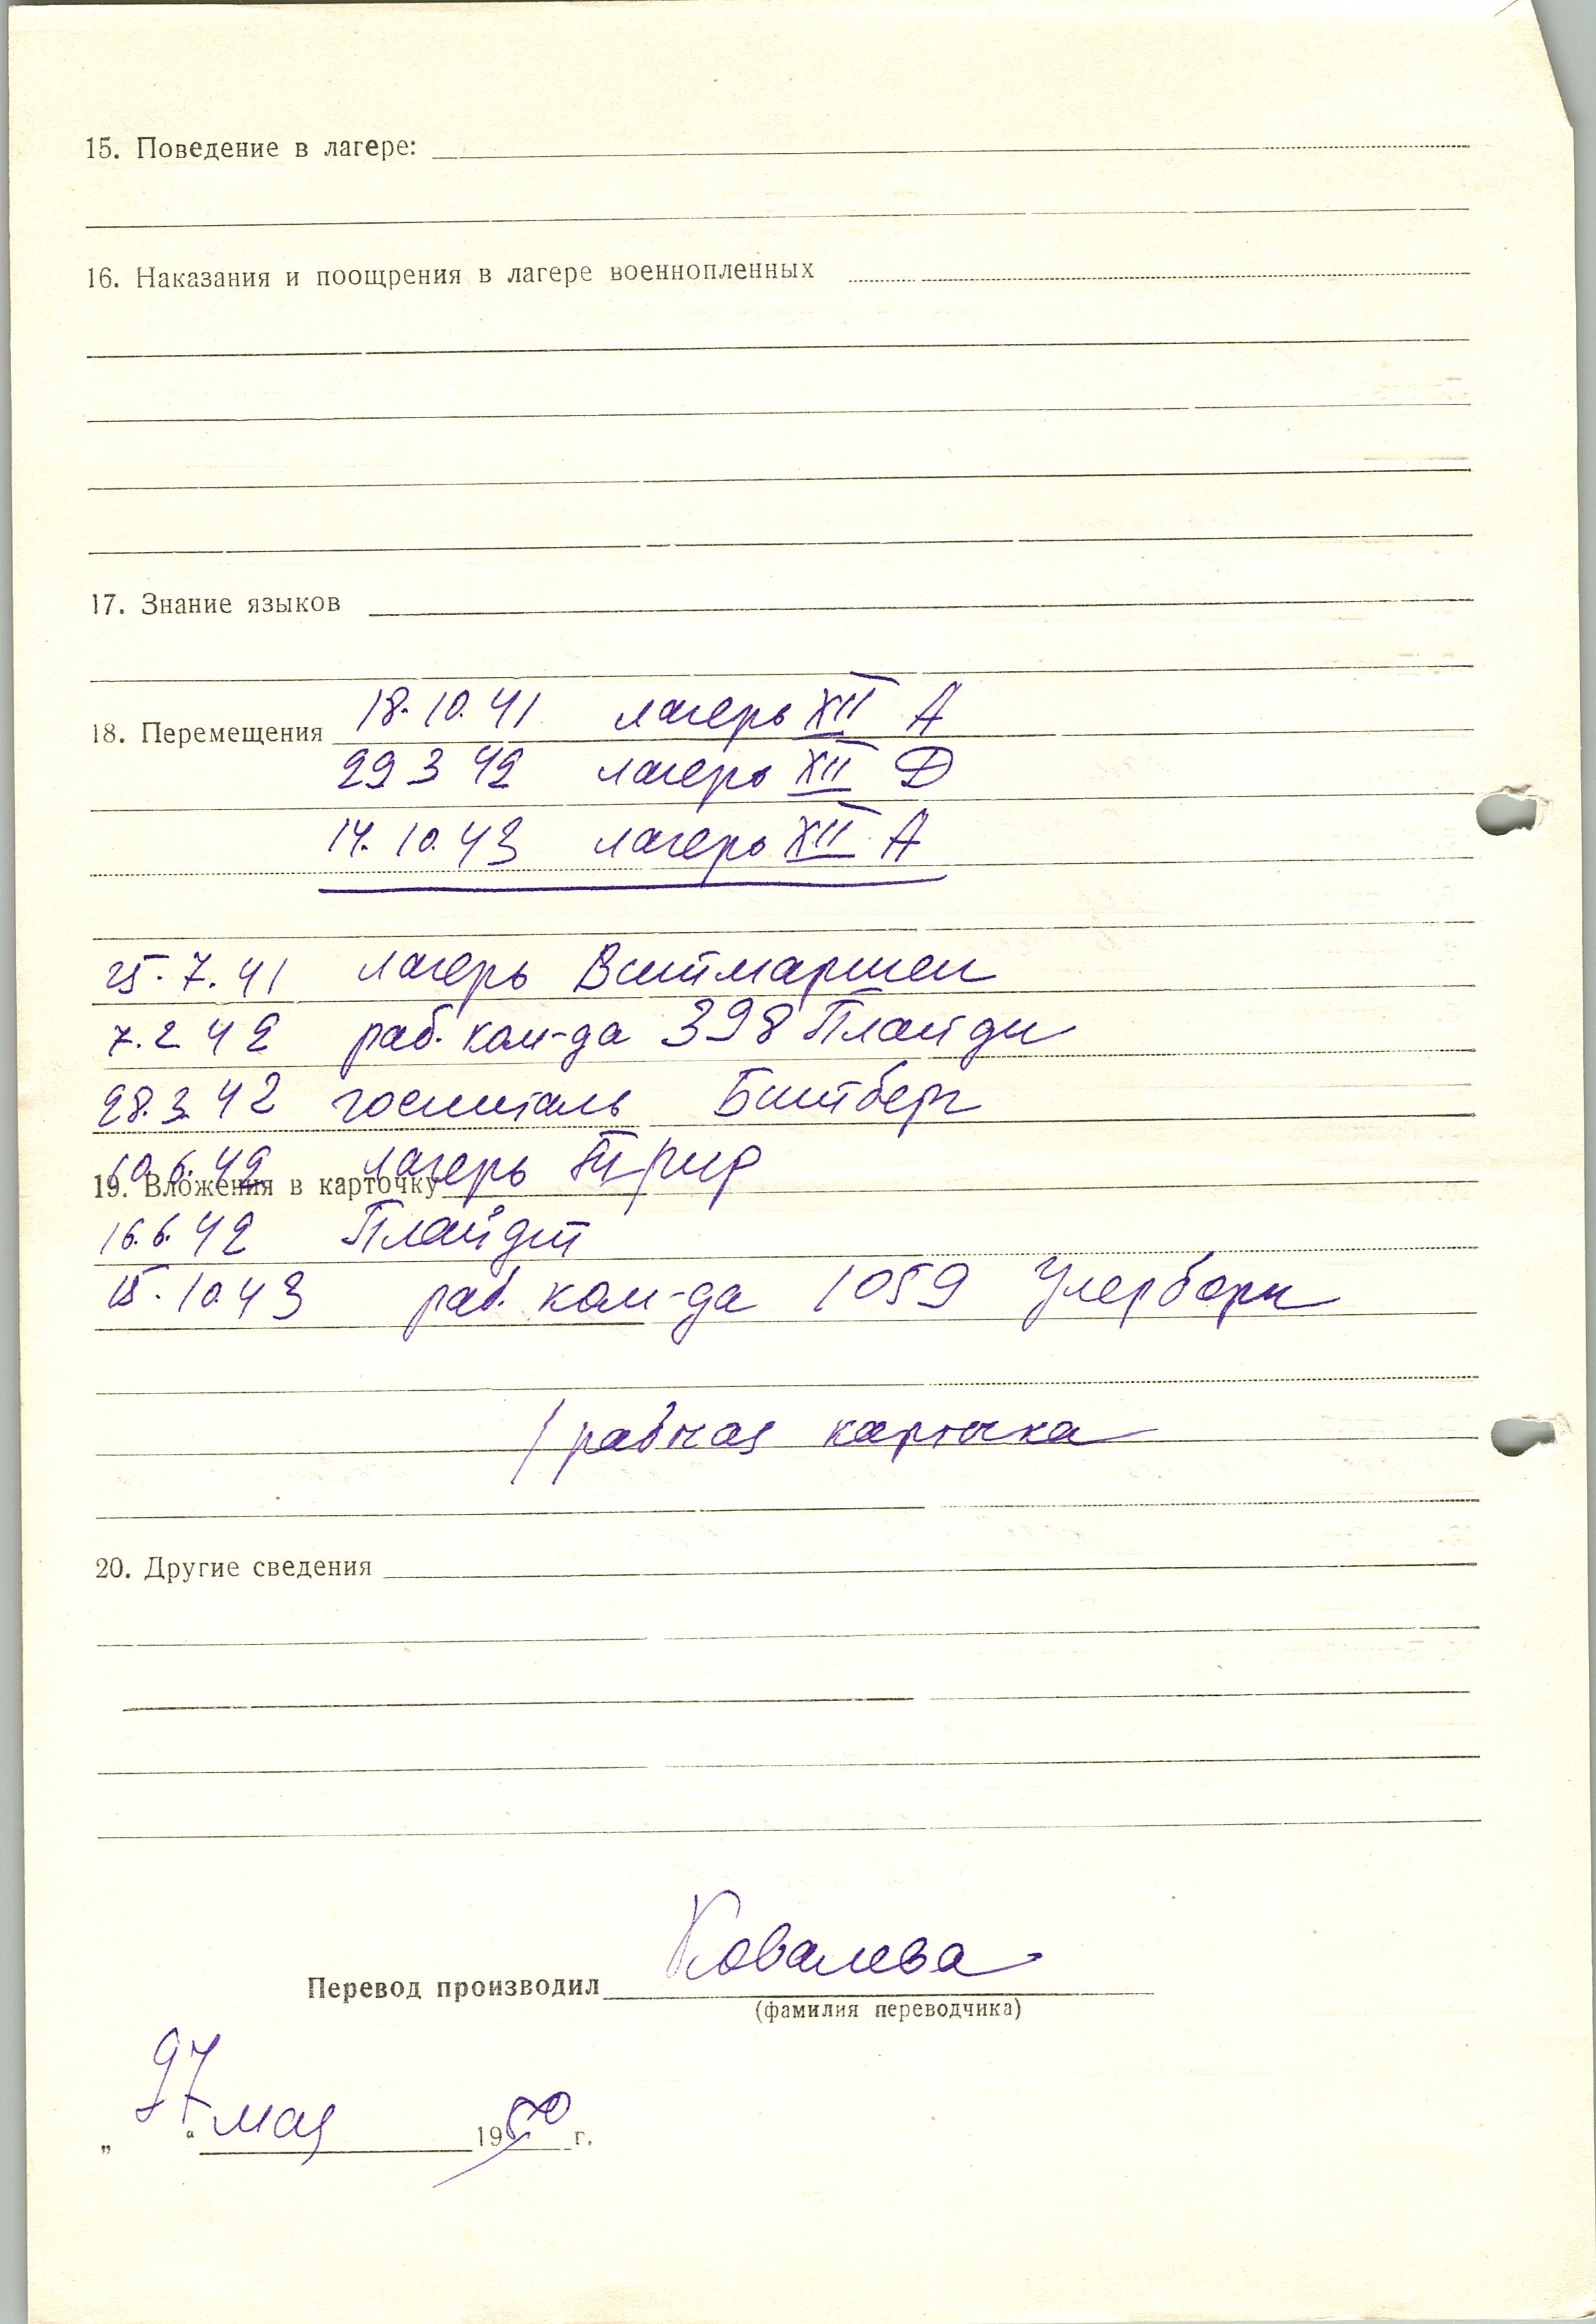 15. Поведение в лагере:
16. Наказания и поощрения в лагере военнопленных
17. Знание языков
18. Перемещения 18.10.41 лагерь XII А
29 3 42 лагерь XII Д
14.10.43 лагерь XII А
25.7.41 лагерь Витмаршен
7.2 42 раб. ком-да 398
28.3.42 госпиталь Битберг
10.6.42 лагерь Трир
19. Вложения в карточку
16.6.42 Плайдт
15.10.43 раб. ком-да 1059 Улерборн
/рабочая карточка
20. Другие сведения
Перевод производил Ковалева
(фамилия переводчика)
„27“ мая 1950 г.